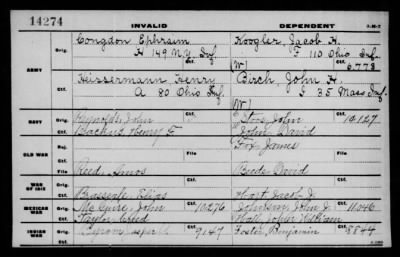 14274
INVALID
DEPENDENT
ARMY
Orig.
Congdon Ephraim
H 149 N.Y. Inf.
Orig.
Koogler, Jacob H.
F 110 Ohio Inf.
(W)
6.778
Ctf.
Heissermann, Henry
A 80 Ohio Inf.
Ctf.
Birch, John H.
I 35 Mass Inf.
(W)
NAVY
Orig.
Reynolds, John
Ctf.
Orig.
John
Ctf.
14127
Ctf.
Backus Henry F.
Ctf.
John David
OLD WAR
Fox James
File
File
Reed, Amos
Beede David
WAR OF 1812
Elias
Hart Jacob J.
MEXICAN WAR
Orig.
McGuire, John
Ctf.
10276
Orig.
Johnson, John J.
Ctf.
11046
Taylor Creed
Hall, John William
INDIAN WAR
Orig.
Byrom Jasper
Ctf.
9147
Orig.
Foster Benjamin
Ctf.
8844